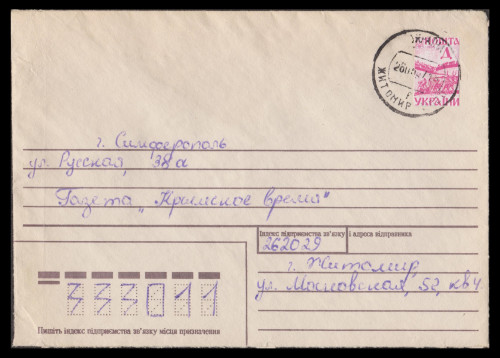 ПОШТА
Д
УКРАЇНИ
ЖИТОМИР
г. Симферополь
ул. Русская, 38а
Газета „Крымское время"
Індекс підприємства зв'язку і адреса відправника
262029
г. Житомир,
ул. Московская, 52, кв 4
333011
Пишіть індекс підприємства зв'язку місця призначення